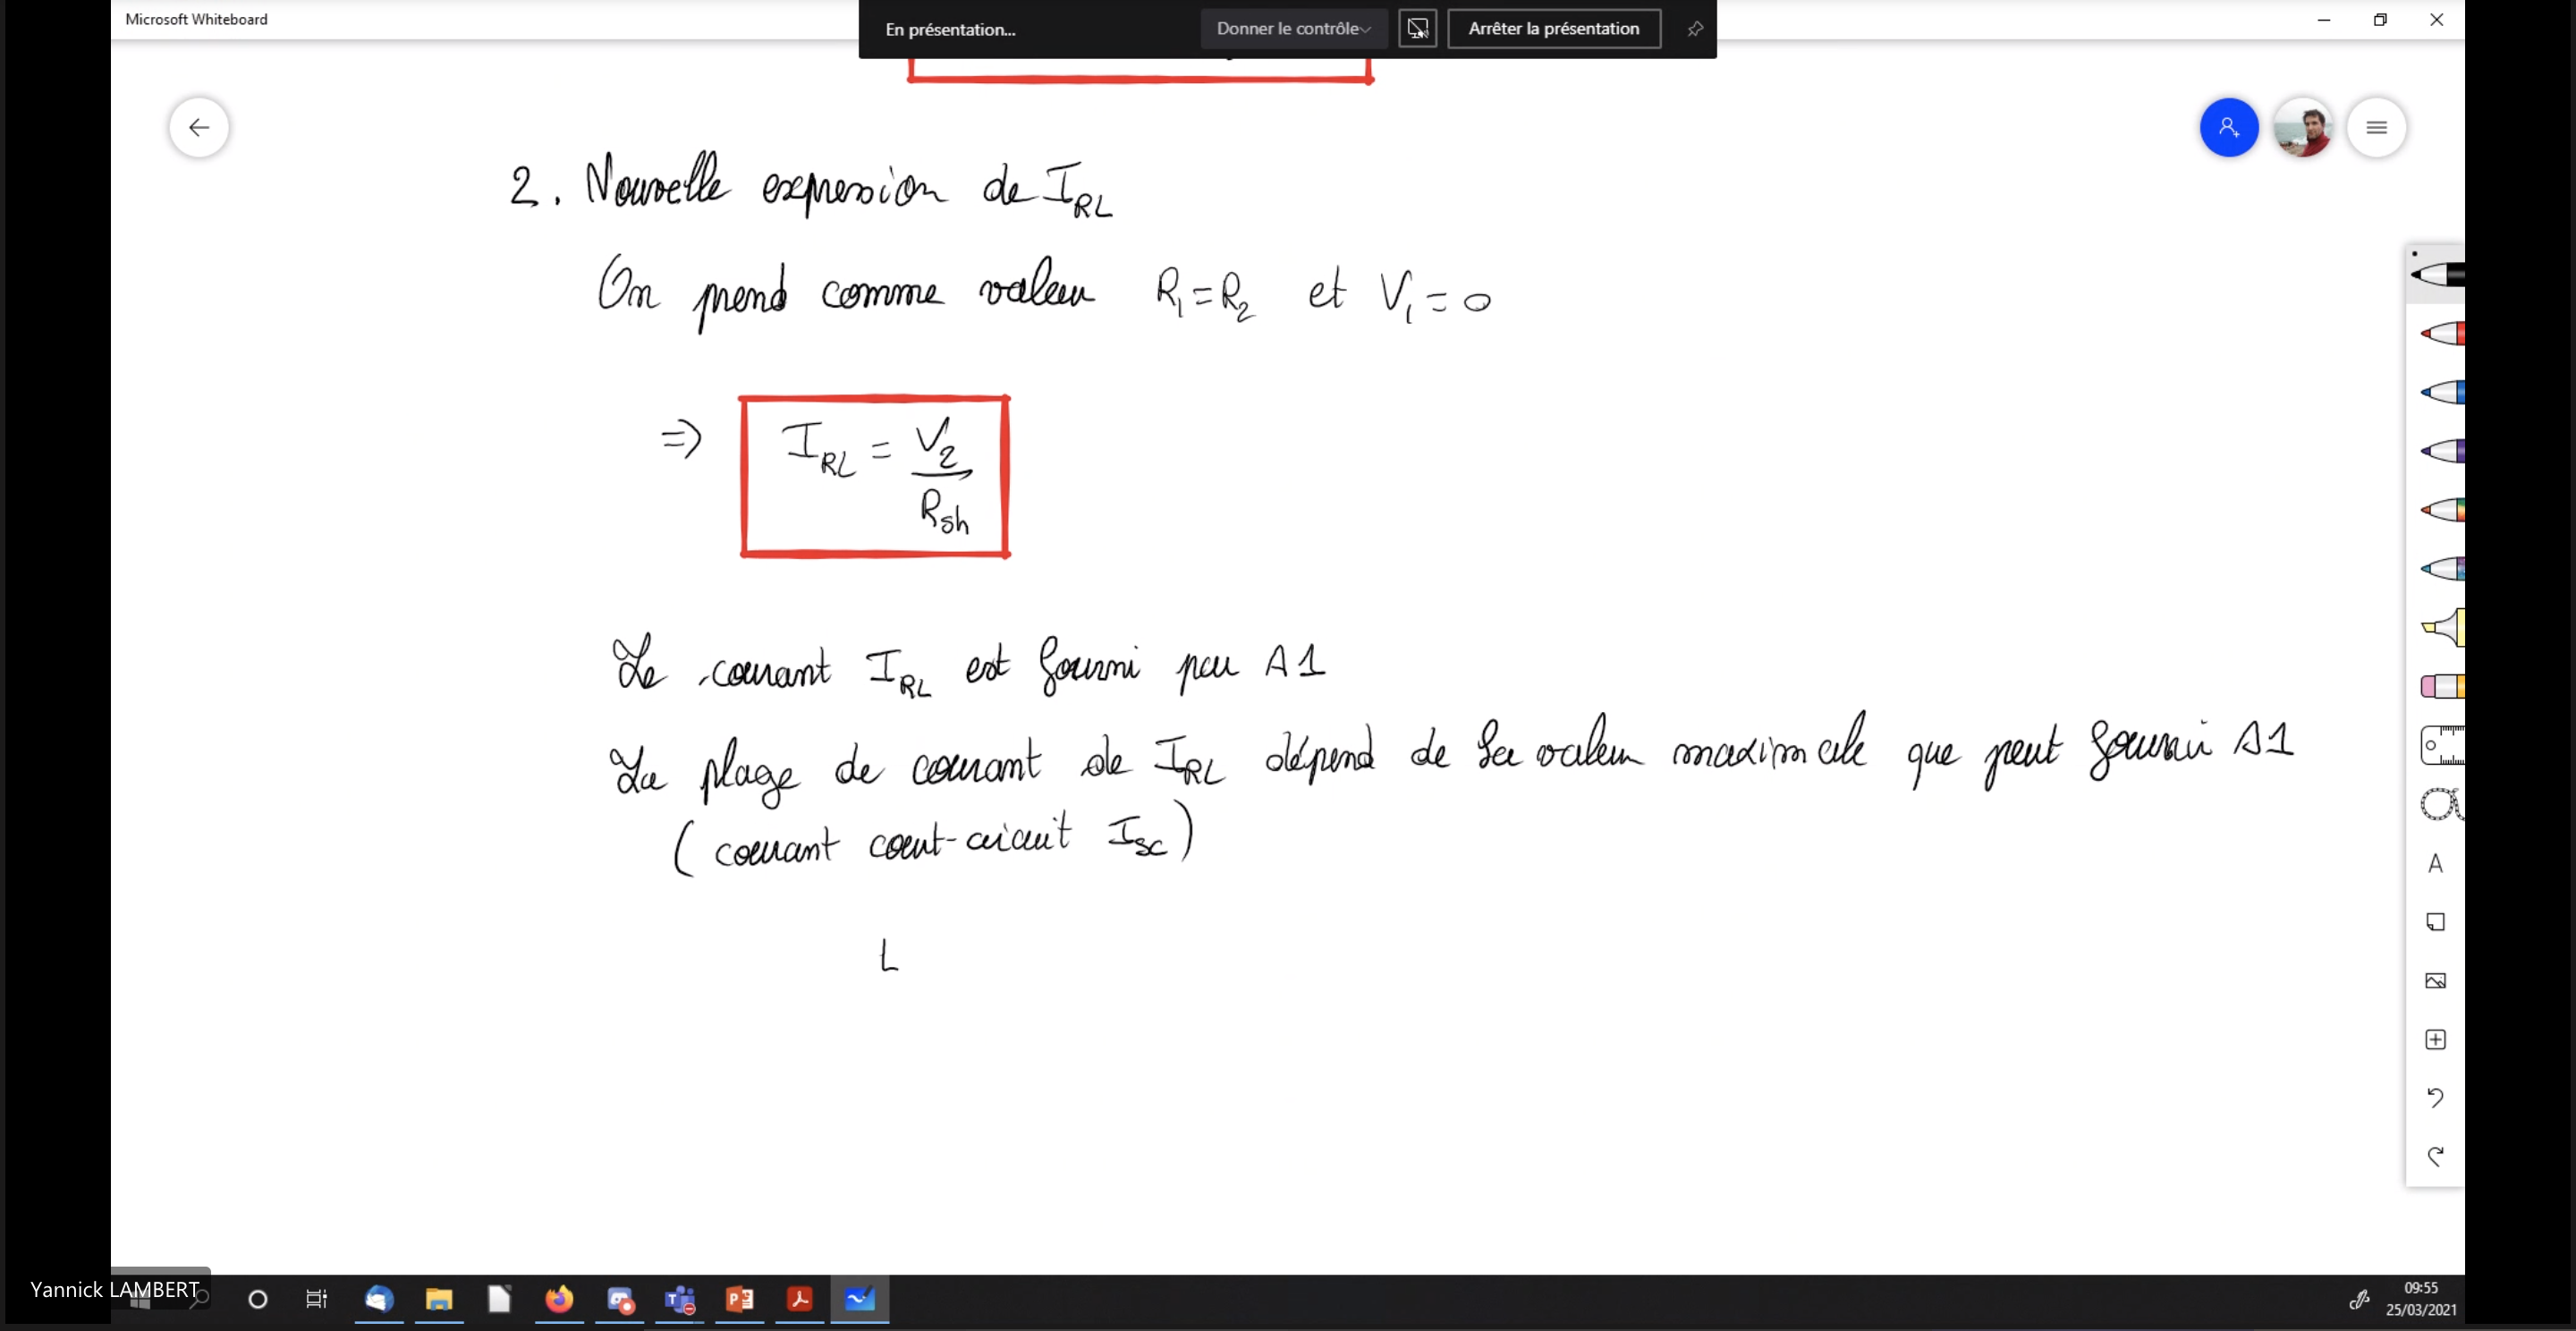 Microsoft Whiteboard
En présentation...
Donner le contrôle
Arrêter la présentation
2. Nouvelle expression de I_RL
On prend comme valeur R₁=R₂ et V₁=0
=> I_RL = V₂ / R_sh
Le courant I_RL est fourni par A1
La plage de courant de I_RL dépend de la valeur maximale que peut fournir A1
(courant court-circuit I_sc)
L
A
Yannick LAMBERT
09:55
25/03/2021